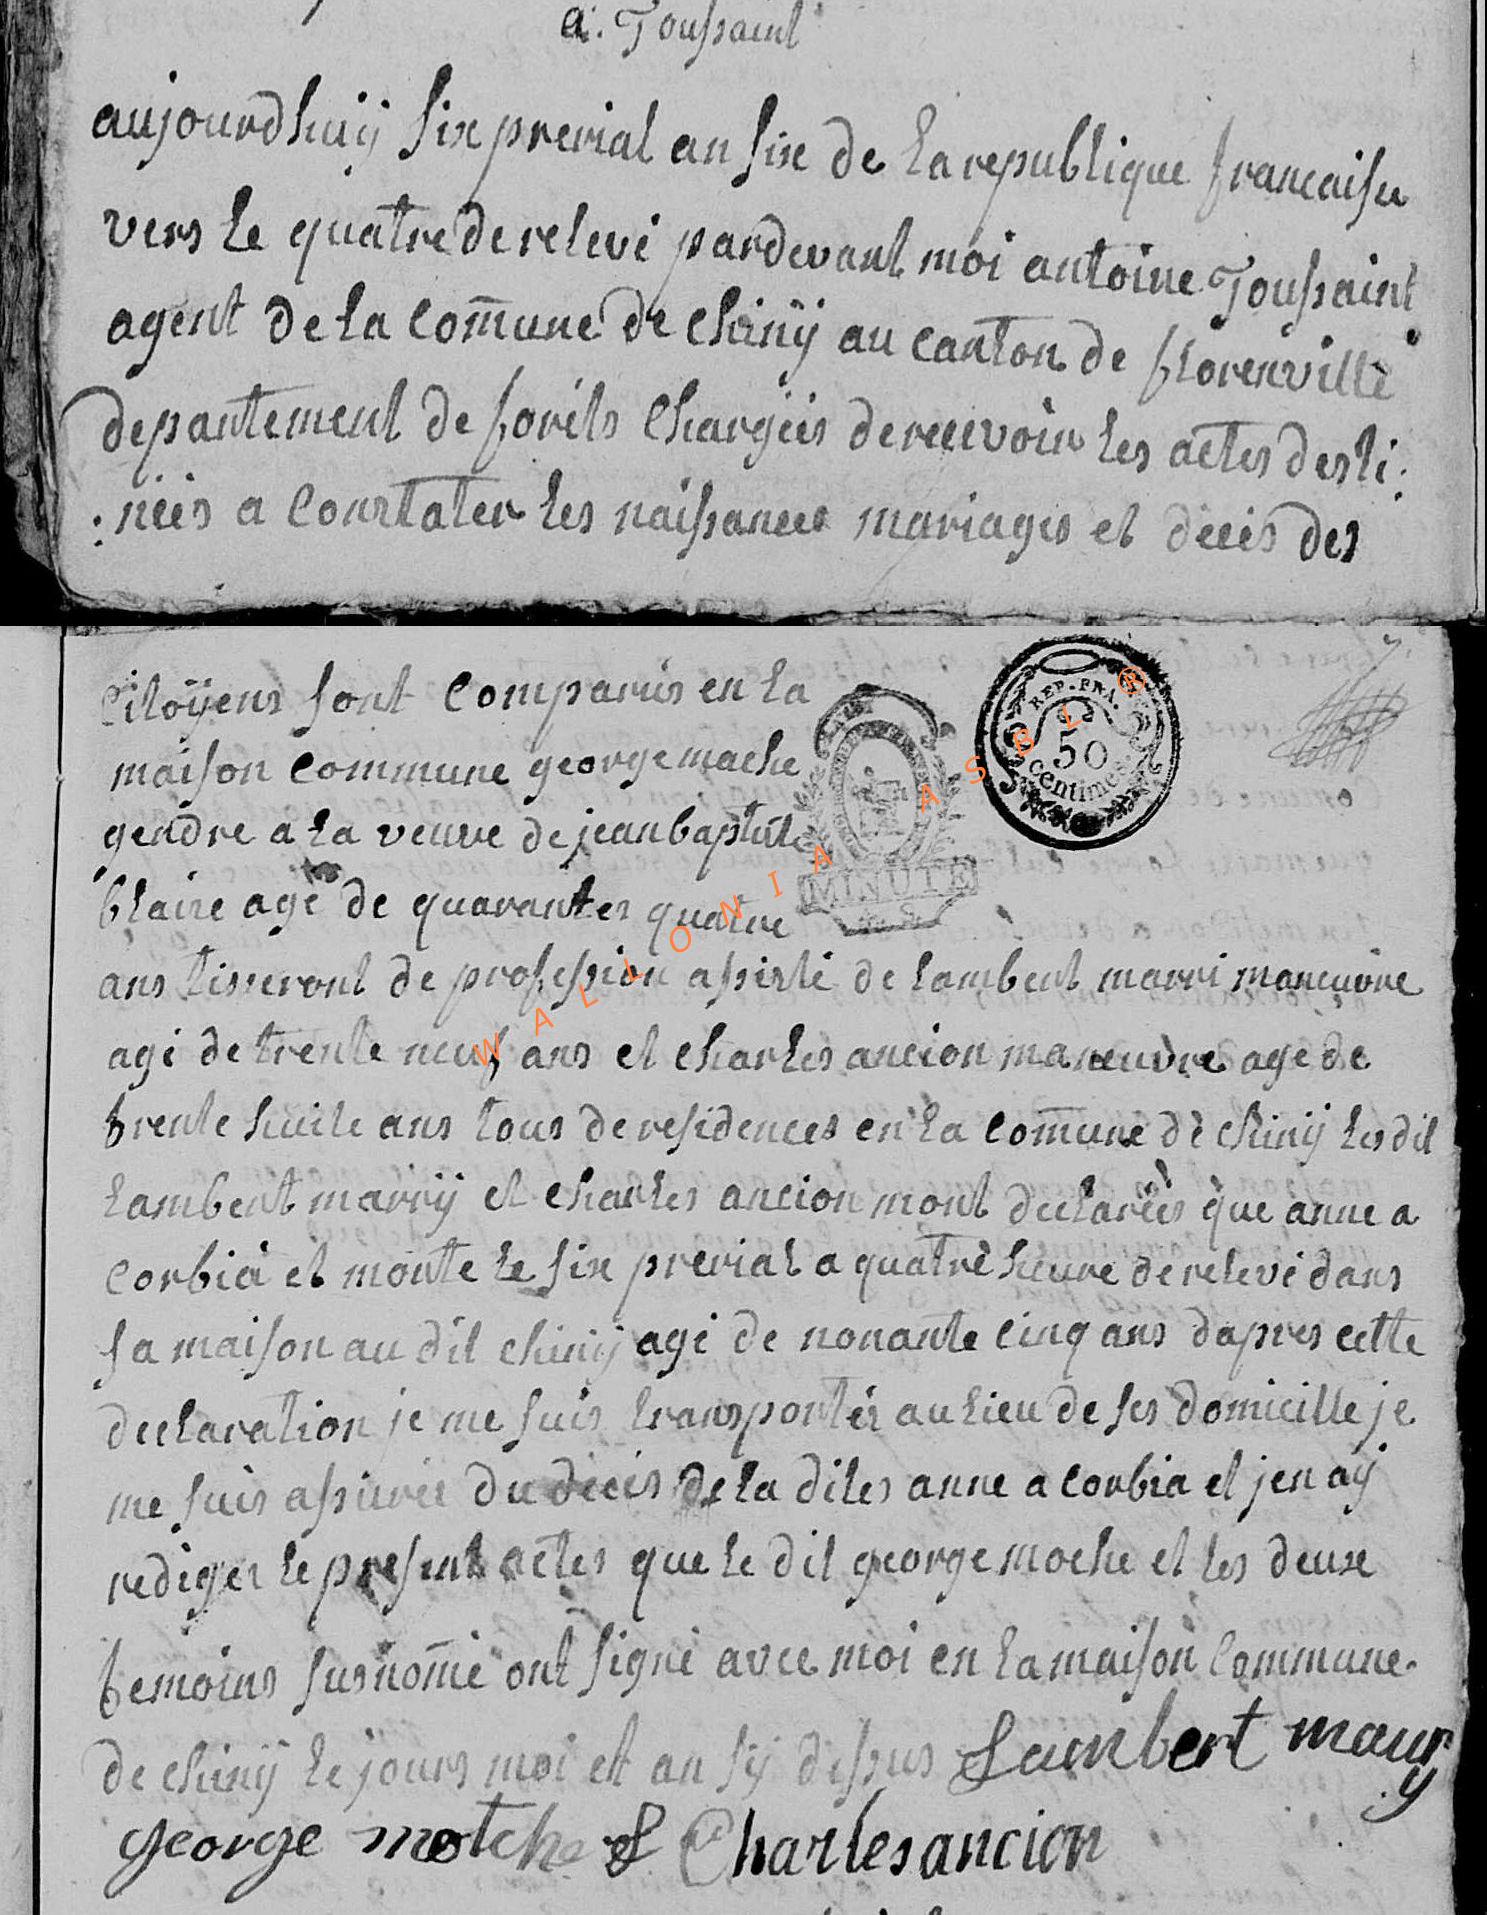 a. Toussaint
aujourdhuÿ six prerial an six de la republique francaise
vers le quatre de relevé pardevant moi antoine Toussaint
agent de la com̄une de chinÿ au canton de florenville
departement de foréts chargéés de recevoir les actes desti:
:néés a constater les naissances mariages et décés des
Citoÿens sont comparus en la
maison commune george mache
gendre a la veuve de jean baptiste
blaire agé de quarantes quatre
ans tisseront de profession assisté de lambert marri maneuvre
agé de trente neuf ans et charles ancion maneuvre age de
trente huite ans tous de residences en la com̄une de chinÿ les dit
lambert marrÿ et charles ancion mont declaréés que anne a
corbia et morte le six prerial a quatre heure de relevé dans
sa maison au dit chinÿ agé de nonante cinq ans dapres cette
declaration je me suis transportér au lieu de ses domicille je
me suis assurée du décés de la dites anne a corbia et jen aÿ
rediger le present actes que le dit george moche et les deux
temoins susnom̄é ont signé avec moi en la maison commune
de chinÿ le jours moi et an sÿ dessus Lambert maury
george motche Charles ancion
REP. FRA.
50
centimes
MINUTE
WALLONIA ASBL ®